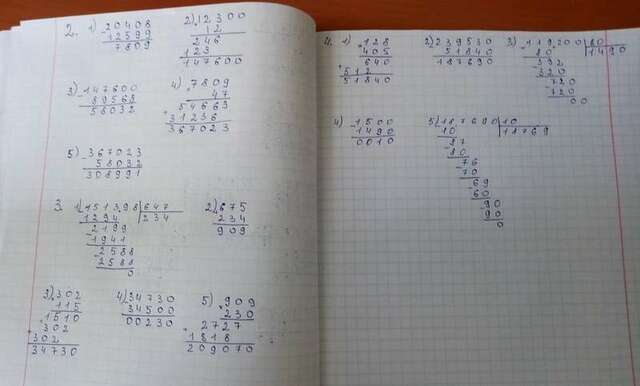 2. 1) -20408 2) 12300
12599 12
7809 246
123
147600
3) -147600 4) 7809
89568 47
58032 54663
31236
367023
5) -367023
58032
308991
3. 1) 151398 | 647 2) 675
1294 | 234 234
-2199 909
1941
-2588
2588
0
3) 302 4) -34730 5) 909
115 34500 230
1510 00230 2727
302 1818
302 209070
34730
4. 1) 128 2) 239530 3) -119200 | 80
405 51840 80 | 1490
640 187690 -392
512 320
51840 -720
720
00
4) -1500 5) 187690 | 10
1490 10 | 18769
0010 -87
80
-76
70
-69
60
-90
90
0